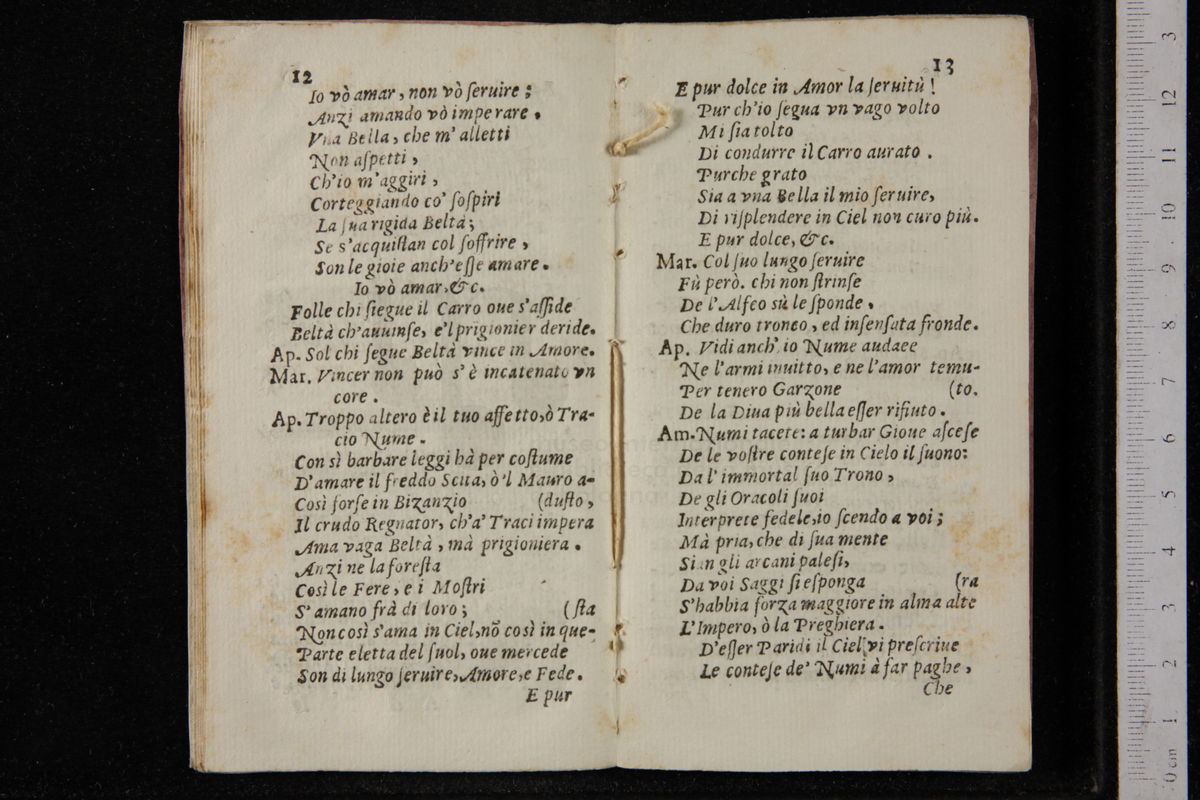 12
Io vò amar, non vò seruire;
Anzi amando vò imperare.
Vna Bella, che m' alletti
Non aspetti,
Ch'io m'aggiri,
Corteggiando co' sospiri
La sua rigida Beltà;
Se s'acquistan col soffrire,
Son le gioie anch'esse amare.
Io vò amar, &c.
Folle chi siegue il Carro oue s'asside
Beltà ch'auuinse, e'l prigionier deride.
Ap. Sol chi segue Beltà vince in Amore.
Mar. Vincer non può s'è incatenato vn
core.
Ap. Troppo altero è il tuo affetto, ò Tra-
cio Nume.
Con sì barbare leggi hà per costume
D'amare il freddo Scita, ò 'l Mauro a-
Così forse in Bizanzio (dusto,
Il crudo Regnator, ch'a' Traci impera
Ama vaga Beltà, mà prigioniera.
Anzi ne la foresta
Così le Fere, e i Mostri
S'amano frà di loro; (sta
Non così s'ama in Ciel, nõ così in que-
Parte eletta del suol, oue mercede
Son di lungo seruire, Amore, e Fede.
E pur
13
E pur dolce in Amor la seruitù!
Pur ch'io segua vn vago volto
Mi sia tolto
Di condurre il Carro aurato.
Purche grato
Sia a vna Bella il mio seruire,
Di risplendere in Ciel non curo più.
E pur dolce, &c.
Mar. Col suo lungo seruire
Fù però. chi non strinse
De l'Alfeo sù le sponde,
Che duro tronco, ed insensata fronde.
Ap. Vidi anch' io Nume audace
Ne l'armi inuitto, e ne l'amor temu-
Per tenero Garzone (to.
De la Diua più bella esser rifiuto.
Am. Numi tacete: a turbar Gioue ascese
De le vostre contese in Cielo il suono:
Da l' immortal suo Trono,
De gli Oracoli suoi
Interprete fedele, io scendo a voi;
Mà pria, che di sua mente
Sian gli arcani palesi,
Da voi Saggi si esponga (ra
S'habbia forza maggiore in alma alte
L'Impero, ò la Preghiera.
D'esser Paridi il Ciel vi prescriue
Le contese de' Numi à far paghe,
Che